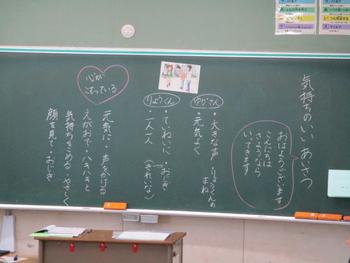 気持ちのいい、あいさつ
おはようございます
こんにちは
さようなら
いってきます
ゆびさん
・大きな声・りょうくんの
まね
・元気よく
りょうくん
・ていねいに・おじぎ
・一人一人（きれいな）
心が
こもっている
元気に・声をかける
えがおで・ハキハキと
気持ちをこめる
顔を見て・おじぎ